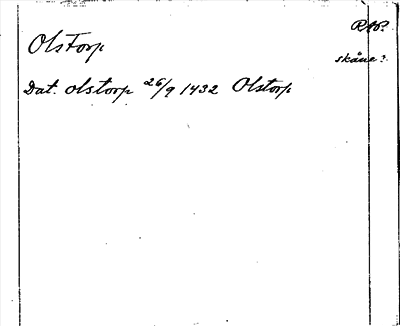 Olstorp
skåne?
Dat. olstorp 26/9 1432 Olstorp